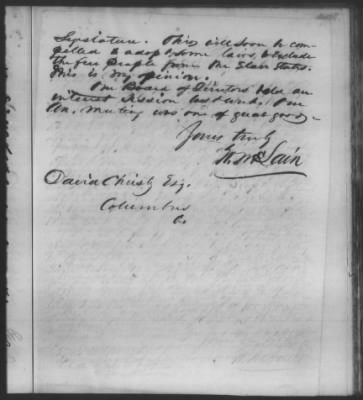 Legislature. This will soon be com-
pelled to adopt some laws to exclude
the free people from the Slave States.
This is my opinion.
The Board of Directors held an
interest session last week. The
An. Meeting was one of great good
Yours truly
W. McLain
David Christy Esq.
Columbus
O.